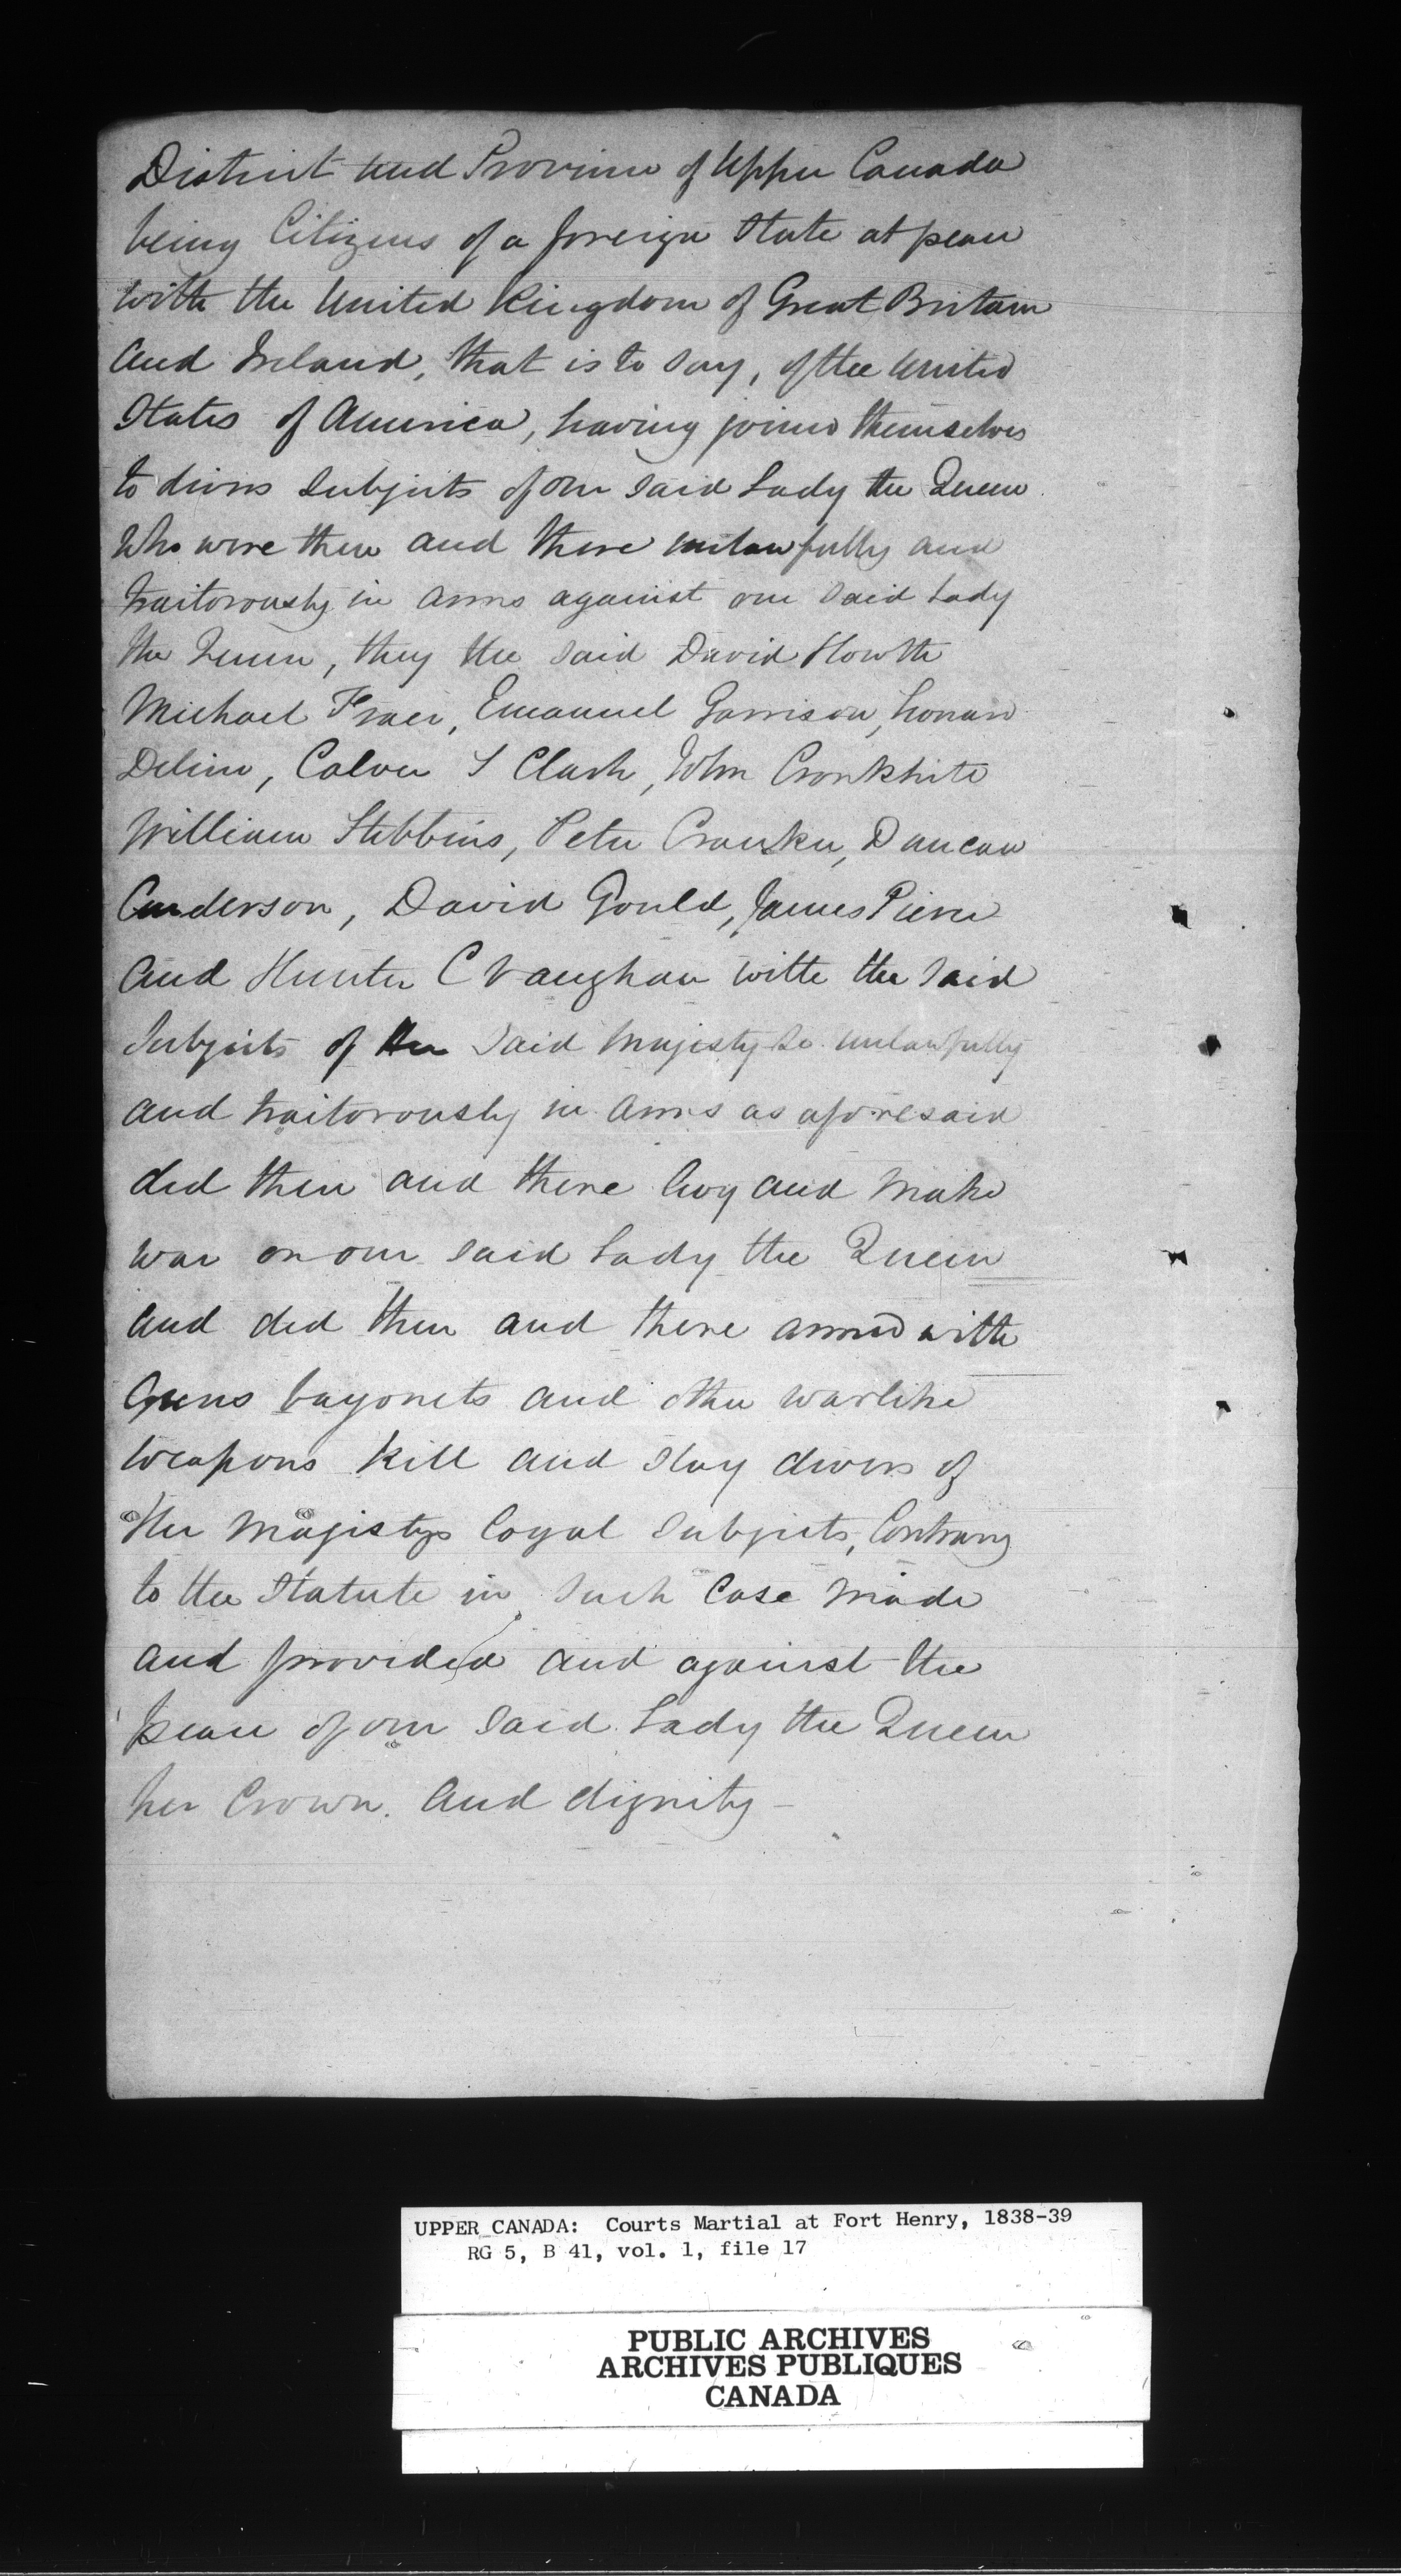 District and Province of Upper Canada
being Citizens of a foreign State at peace
with the United Kingdom of Great Britain
and Ireland, that is to say, of the United
States of America, having joined themselves
to divers Subjects of our said Lady the Queen
who were then and there unlawfully and
traitorously in arms against our said Lady
the Queen, they the said David Howth
Michael Fraer, Emanuel Garrison, Lonan
Delino, Calvin S Clark, John Cronkhite
William Stebbins, Peter Cranker, Duncan
Anderson, David Gould, James Pierce
and Hunter C Vaughan with the said
Subjects of Her said Majesty so unlawfully
and traitorously in arms as aforesaid
did then and there levy and make
war on our said Lady the Queen
and did then and there armed with
Guns bayonets and other warlike
weapons kill and slay divers of
Her Majestys loyal subjects, Contrary
to the Statute in such Case made
and provided and against the
peace of our said Lady the Queen
her Crown. and dignity –
UPPER CANADA: Courts Martial at Fort Henry, 1838-39
RG 5, B 41, vol. 1, file 17
PUBLIC ARCHIVES
ARCHIVES PUBLIQUES
CANADA